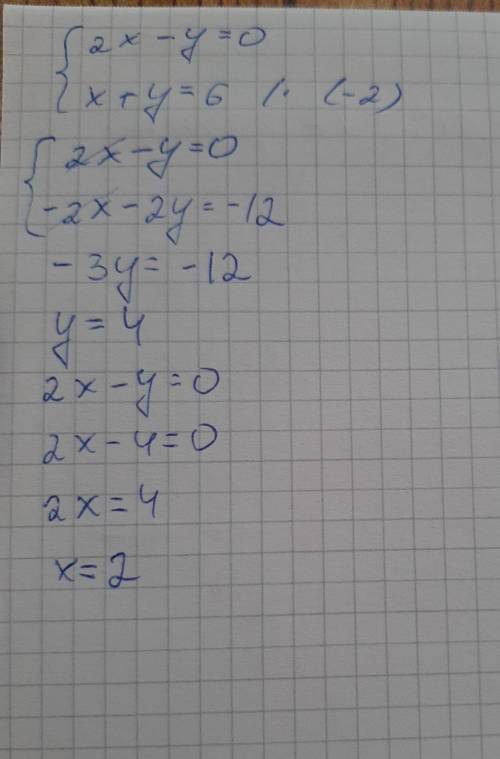 2x - y = 0
x + y = 6 /· (-2)
2x - y = 0
-2x - 2y = -12
- 3y = -12
y = 4
2x - y = 0
2x - 4 = 0
2x = 4
x = 2